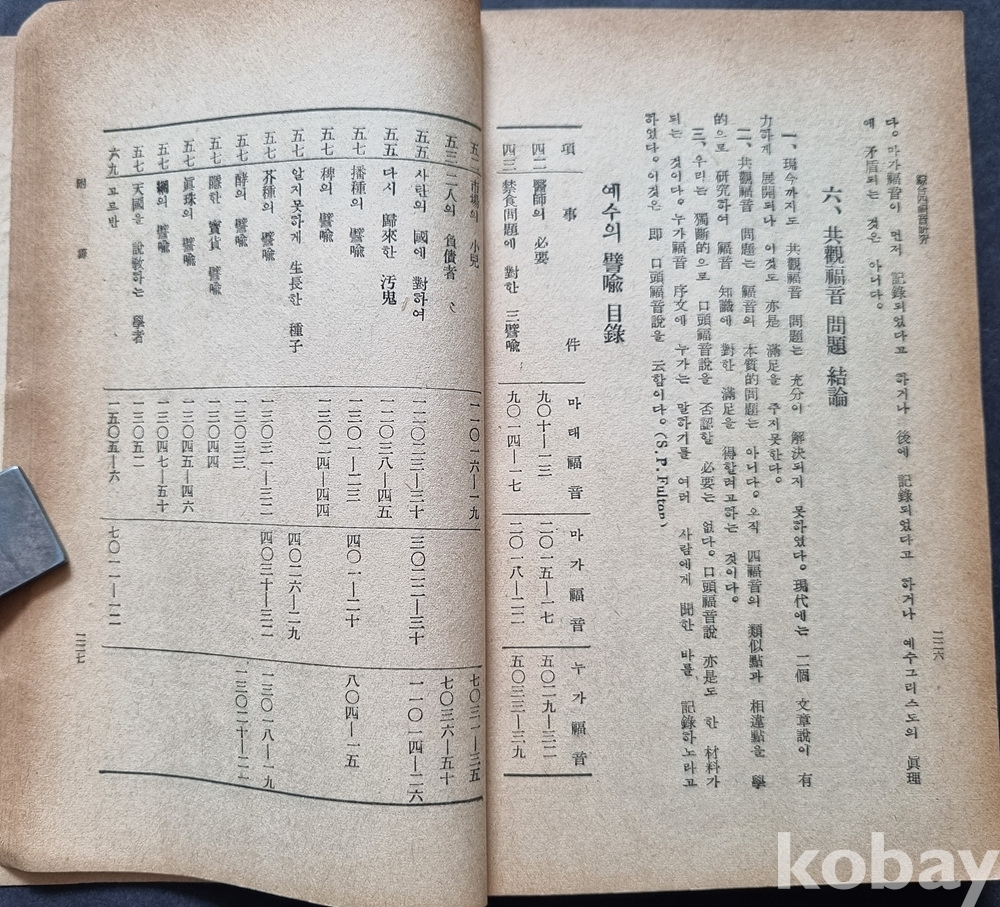 綜合四福音研究
二二六
다。마가福音이 먼저 記錄되었다고 하거나 後에 記錄되었다고 하거나 예수그리스도의 眞理
에 矛盾되는 것은 아니다。
六、共觀福音 問題 結論
一、現今까지도 共觀福音 問題는 充分이 解決되지 못하였다。現代에는 二個 文章說이 有
力하게 展開되나 이것도 亦是 滿足을 주지못한다。
二、共觀福音 問題는 福音의 本質的問題는 아니다。오직 四福音의 類似點과 相違點을 學
的으로 研究하여 福音 知識에 對한 滿足을 得할려고하는 것이다。
三、우리는 獨斷的으로 口頭福音說을 否認할 必要는 없다。口頭福音說 亦是도 한 材料가
되는 것이다。누가福音 序文에 누가는 말하기를 여러 사람에게 聞한 바를 記錄하노라고
하였다。이것은 即 口頭福音說을 云함이다。(S.P.Fulton)
예수의 譬喩 目錄
項 事 件 마태福音 마가福音 누가福音
四二 醫師의 必要 九〇十一—十三 二〇一五—一七 五〇二九—三二
四三 禁食問題에 對한 三譬喩 九〇一四—一七 二〇一八—二二 五〇三三—三九
五二 市場의 小兒 一一〇一六—一九 七〇三一—三五
五三 二人의 負債者 七〇三六—五十
五五 사탄의 國에 對하여 一二〇二三—三十 三〇二二—三十 一一〇一四—二六
五五 다시 歸來한 汚鬼 一二〇三八—四五
五七 播種의 譬喩 一三〇一—二三 四〇一—二十 八〇四—一五
五七 稗의 譬喩 一三〇二四—四四
五七 알지못하게 生長한 種子 四〇二六—二九
五七 芥種의 譬喩 一三〇三一—三二 四〇三十—三二 一三〇一八—一九
五七 酵의 譬喩 一三〇三三 一三〇二十—二一
五七 隱한 寶貨 譬喩 一三〇四四
五七 眞珠의 譬喩 一三〇四五—四六
五七 網의 譬喩 一三〇四七—五十
五七 天國을 說敎하는 學者 一三〇五二
六九 고르반 一五〇五—六 七〇一一—一二
附 錄
二二七
kobay